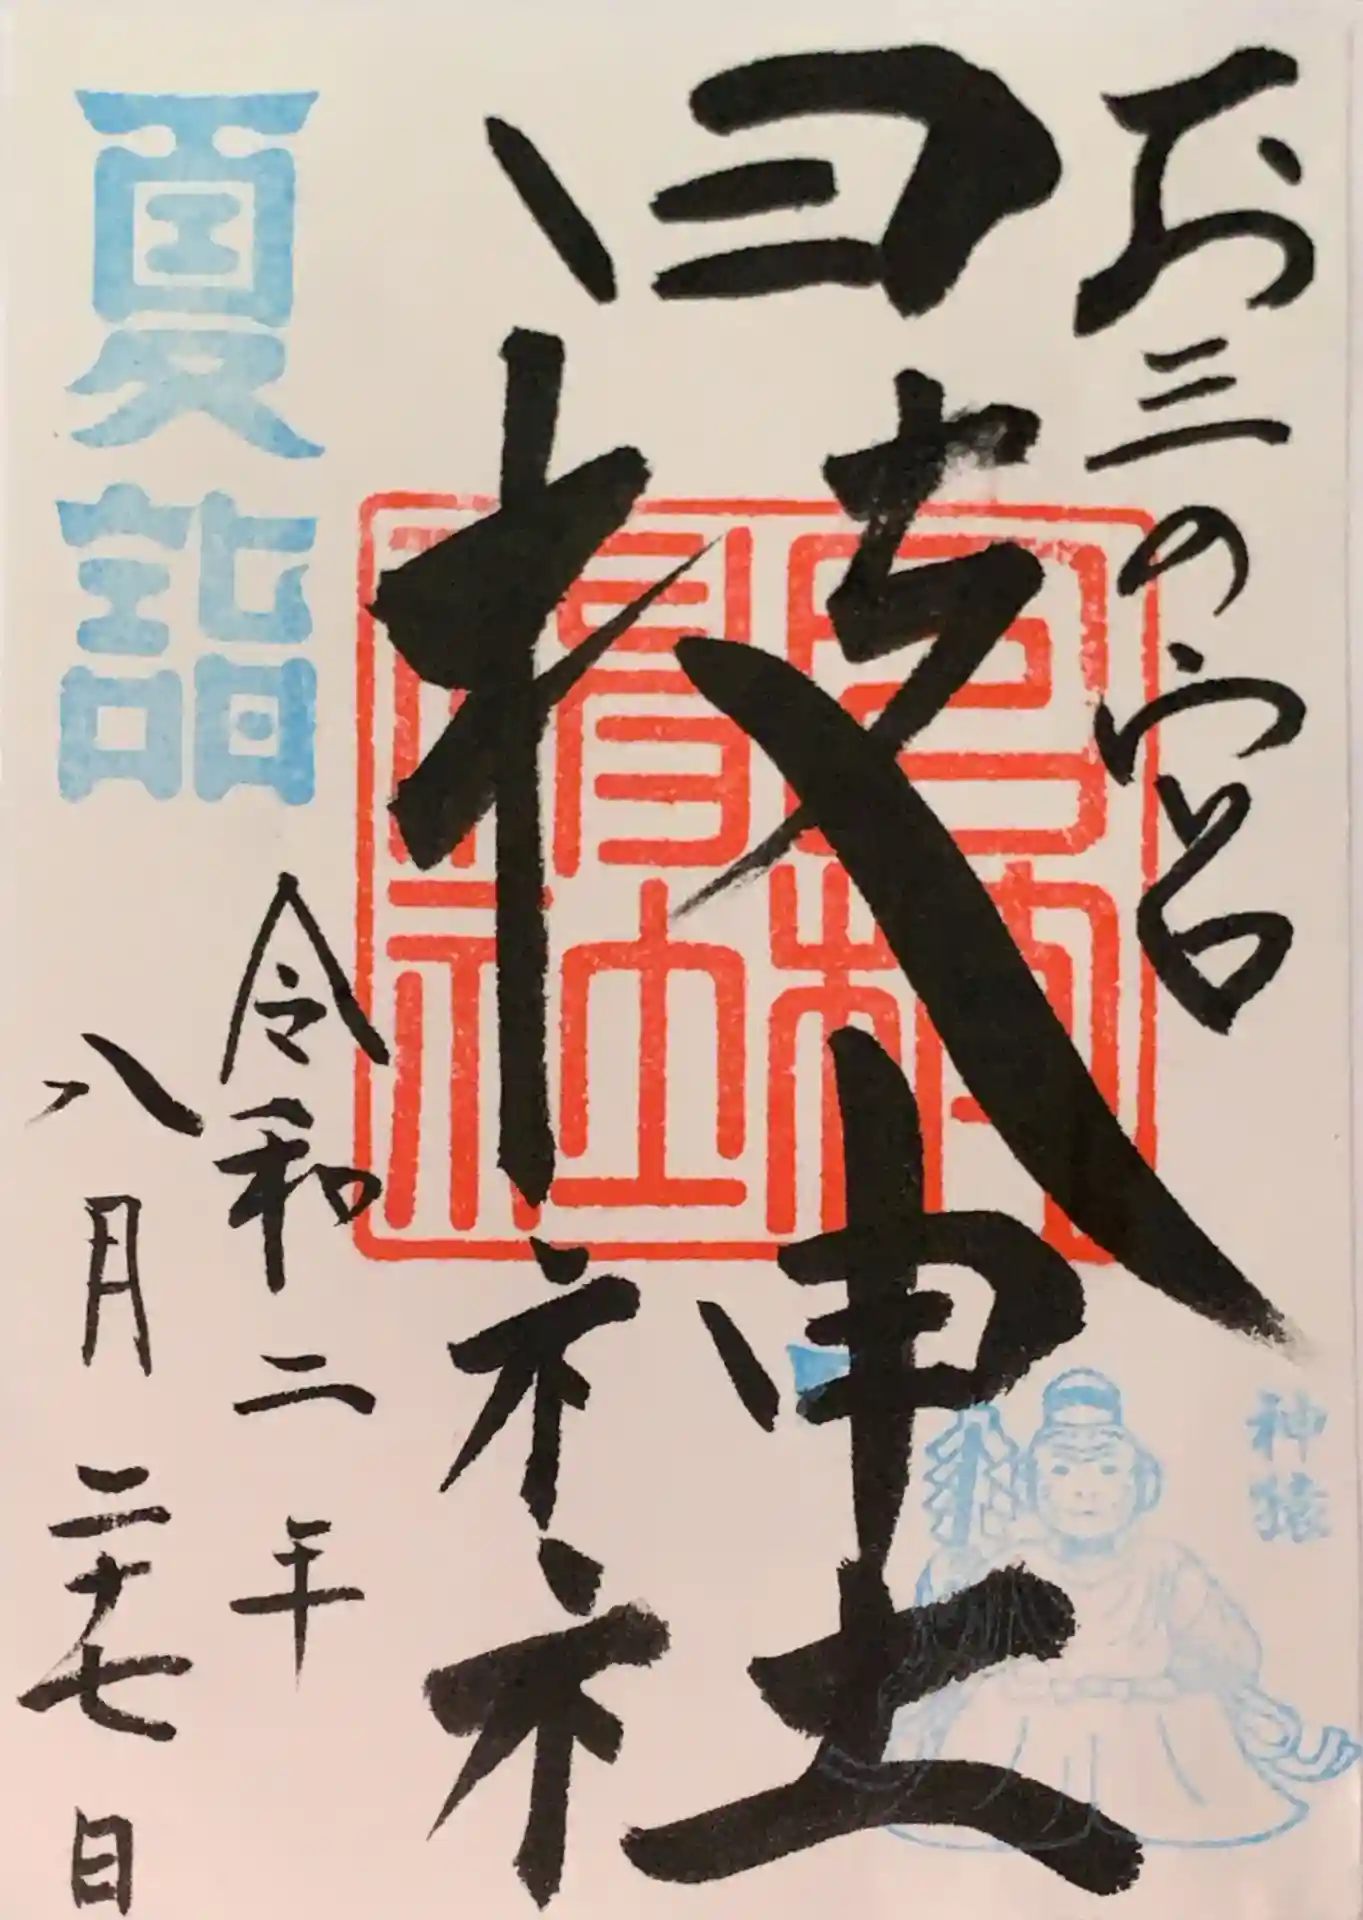 お三の宮
日枝神社
日枝神社
令和二年
八月二十七日
夏詣
神猿